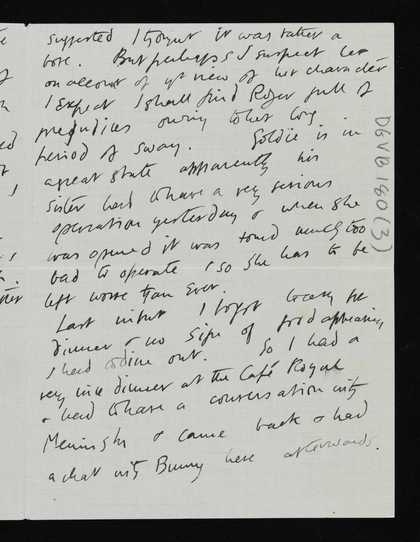 suggested I thought it was rather a
bore. But perhaps I suspect her
on account of yr view of her character
I expect I shall find Roger full of
prejudices owing to her long
period of sway. Goldie is in
a great state apparently his
sister had to have a very serious
operation yesterday & when she
was opened it was found much too
bad to operate, so she has to be
left worse than ever.
Last night I forgot to say
dinner & no sign of food appearing,
I had to dine out. So I had a
very nice dinner at the Café Royal
& had to have a conversation with
& came back & had
a chat with Bunny here afterwards.
DGVB180(3)